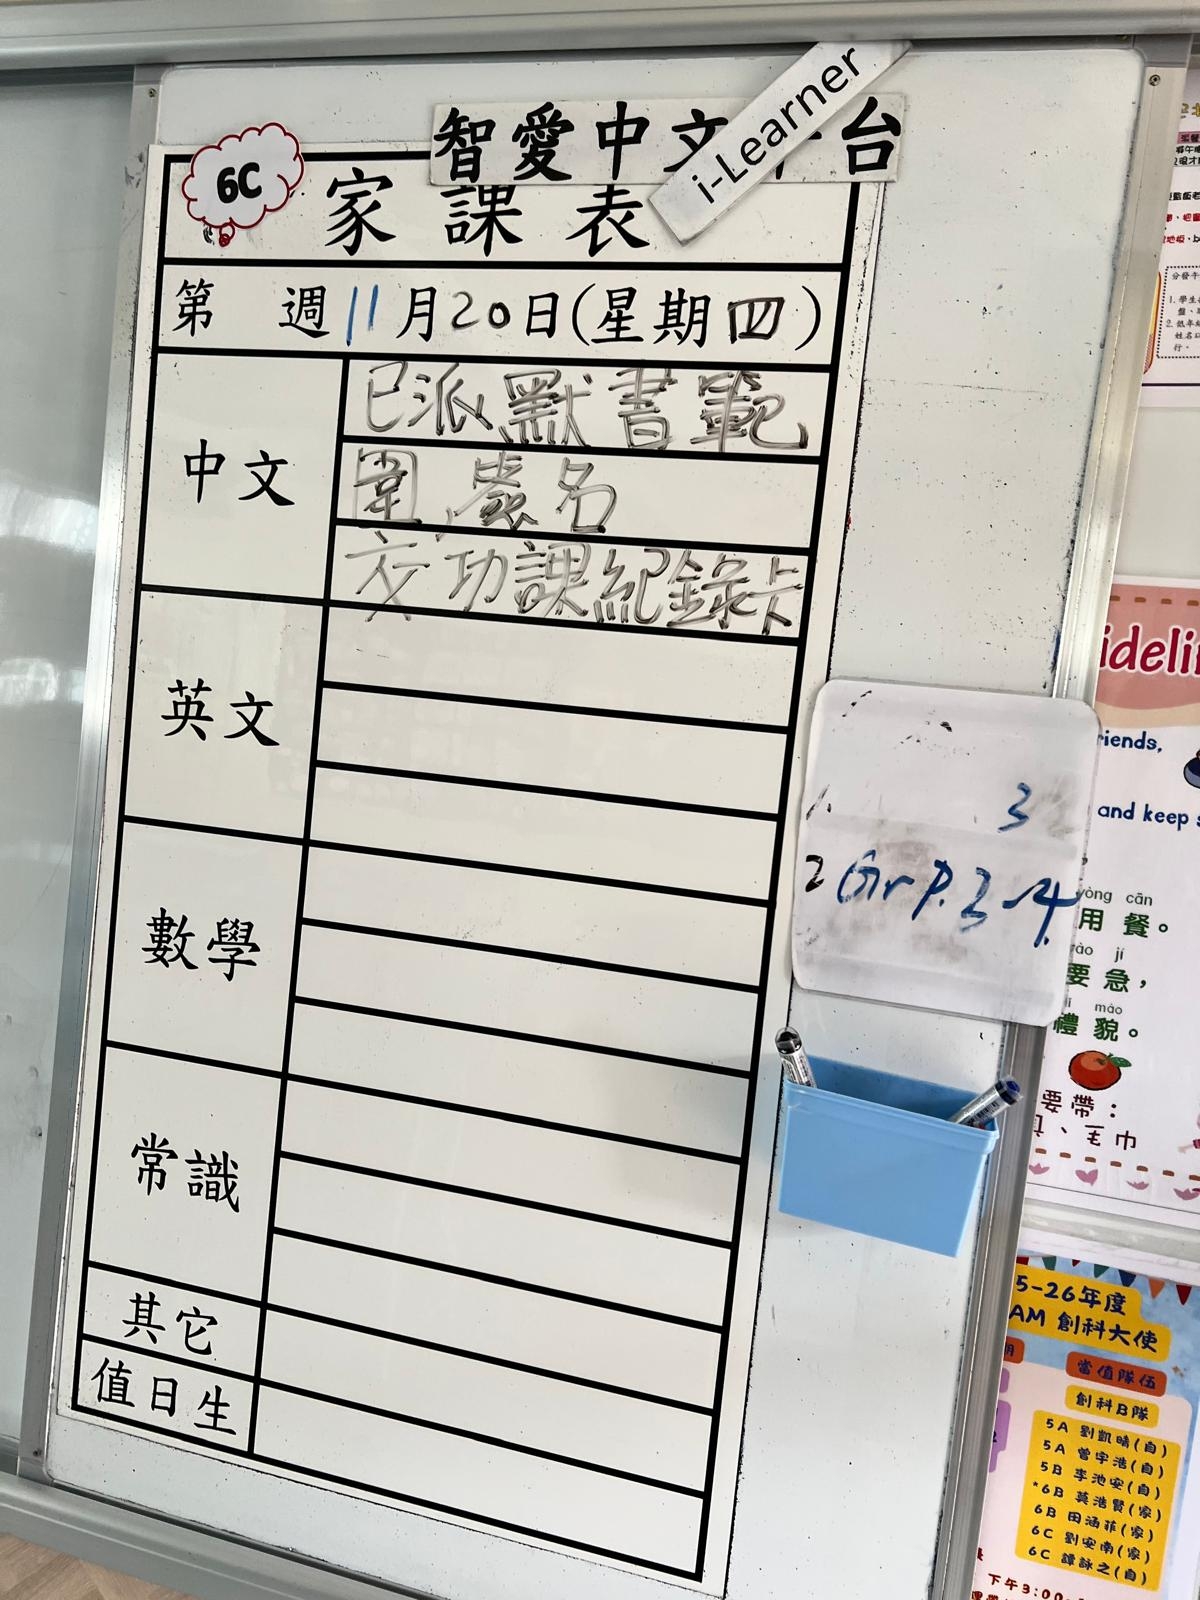 智愛中文 台
i-Learner
6C
家課表
第 週11月20日(星期四)
中文
已派默書範
圍 簽名
交功課紀錄卡
英文
數學
常識
其它
值日生
3
2 Gr P.3~4
idelin
riends,
and keep s
yòng cān
用餐。
jí
要急，
mào
禮貌。
要帶：
、毛巾
5-26年度
AM 創科大使
當值隊伍
創科B隊
5A 劉凱晴(自)
5A 曾宇浩(自)
5B 李池安(自)
*6B 莫浩賢(家)
6B 田涵菲(家)
6C 劉安南(家)
6C 譚詠之(自)
下午3:00